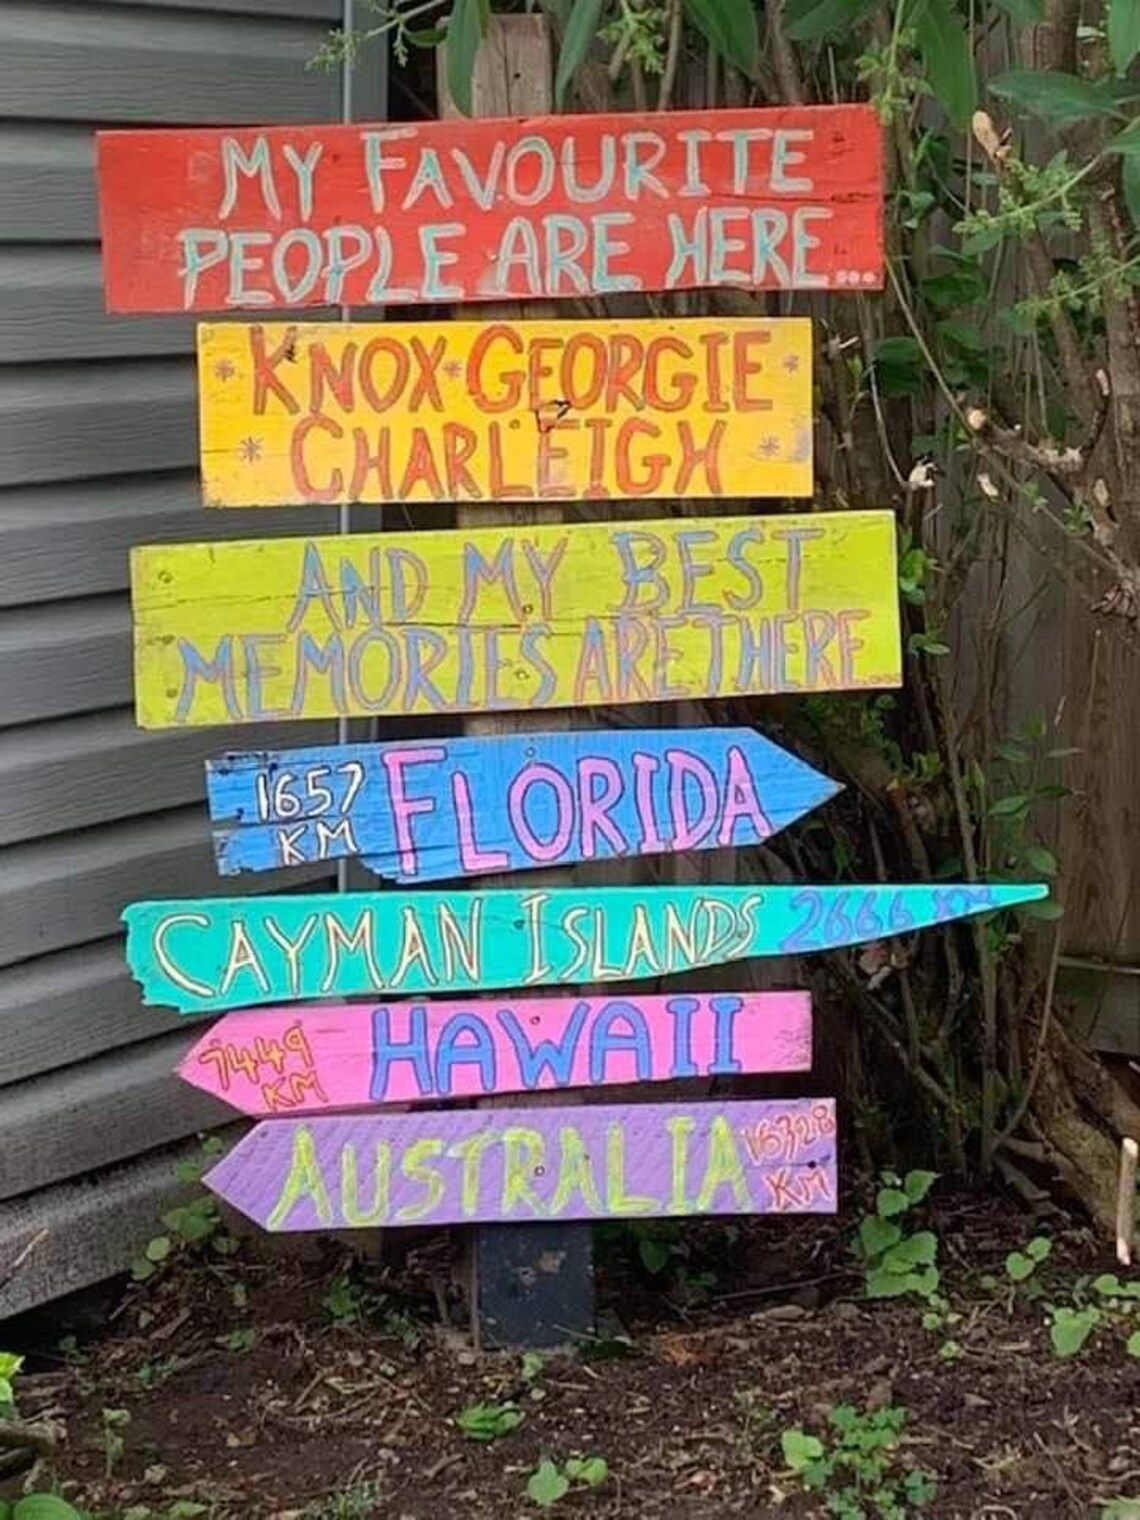 MY FAVOURITE
PEOPLE ARE HERE...
* KNOX * GEORGIE *
* CHARLEIGH *
AND MY BEST
MEMORIES ARE THERE...
1657 KM FLORIDA
CAYMAN ISLANDS 2666 KM
7449 KM HAWAII
AUSTRALIA 16328 KM